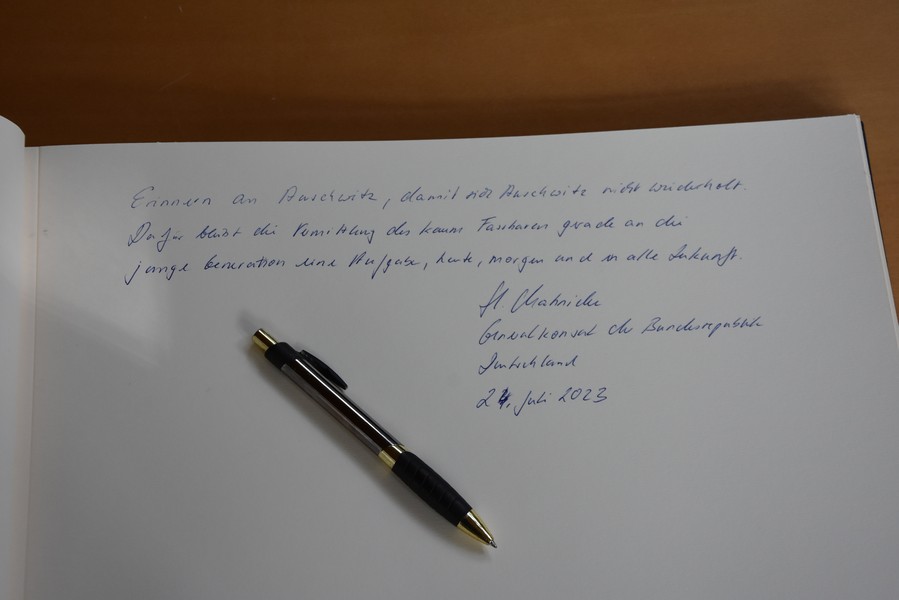 Erinnern an Auschwitz, damit sich Auschwitz nicht wiederholt.
Dafür bleibt die Vermittlung des kaum Fassbaren gerade an die
junge Generation eine Aufgabe, heute, morgen und in alle Zukunft.
Generalkonsul der Bundesrepublik
Deutschland
24. Juli 2023